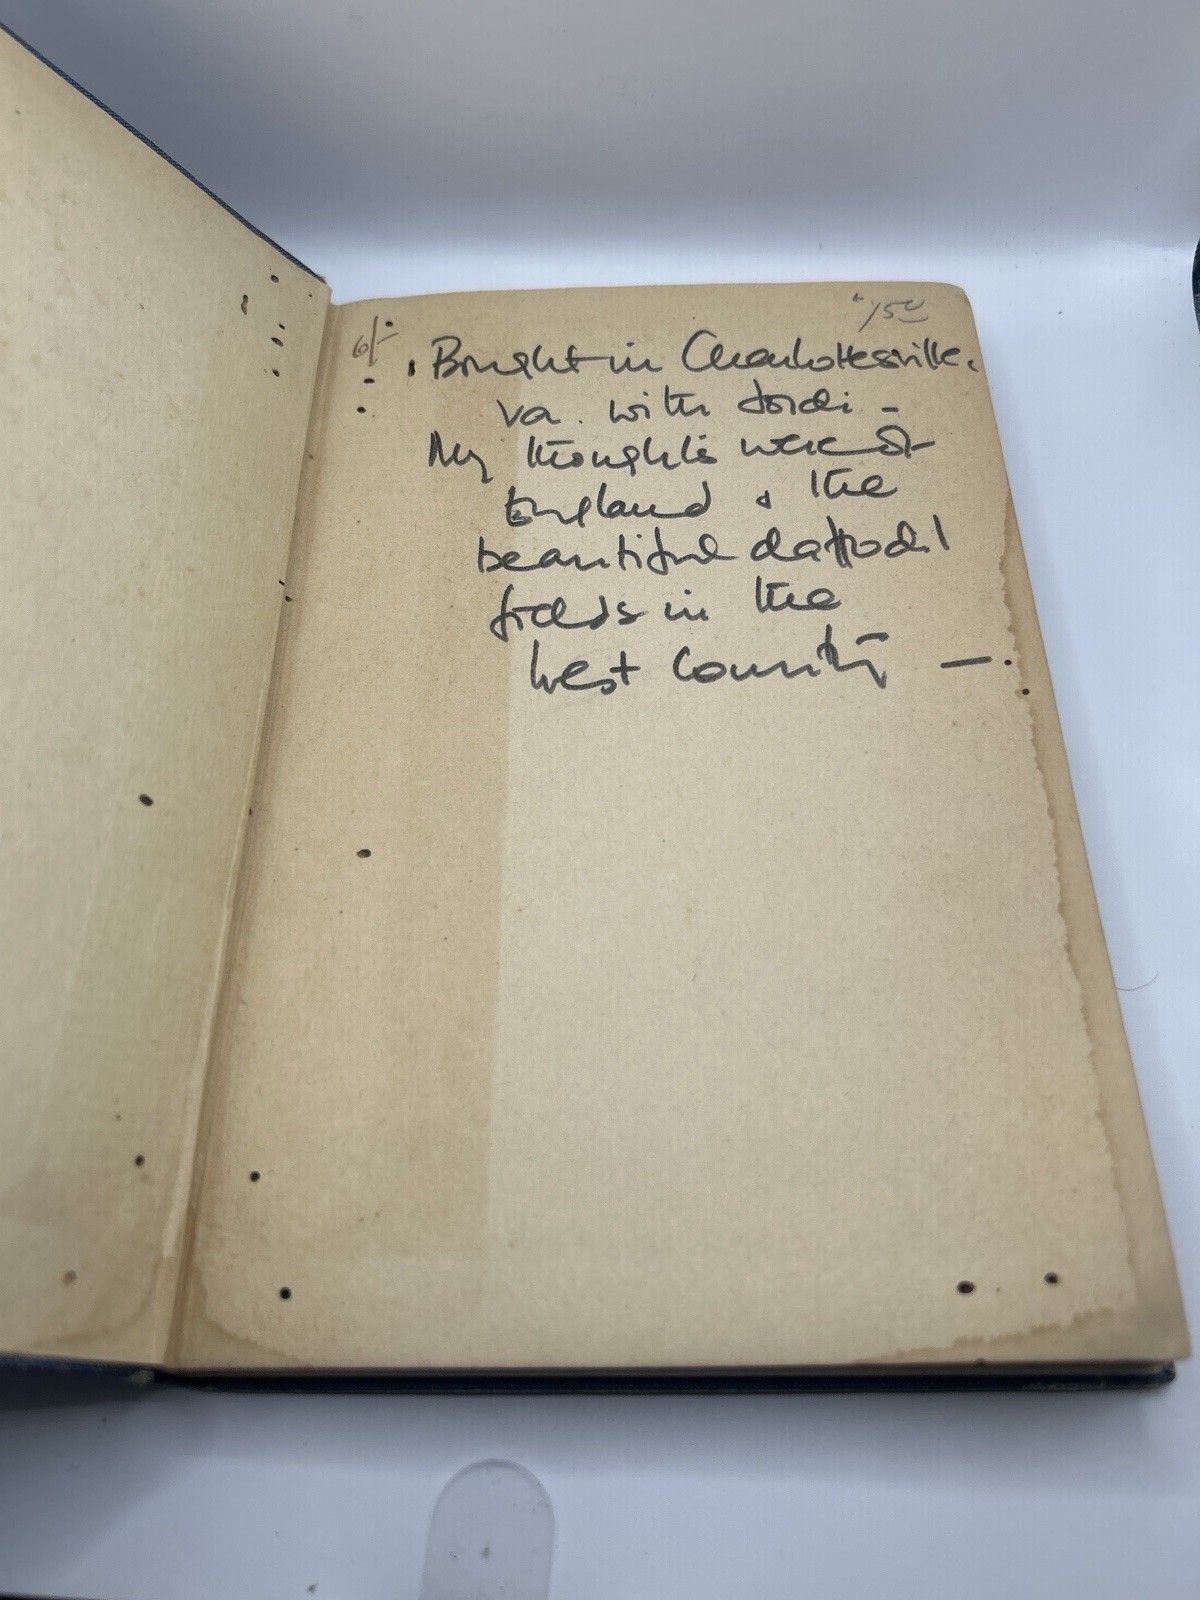 6/-
Bought in Charlottesville,
Va. with Jordi -
My thoughts were of
England & the
beautiful daffodil
fields in the
West Country —.